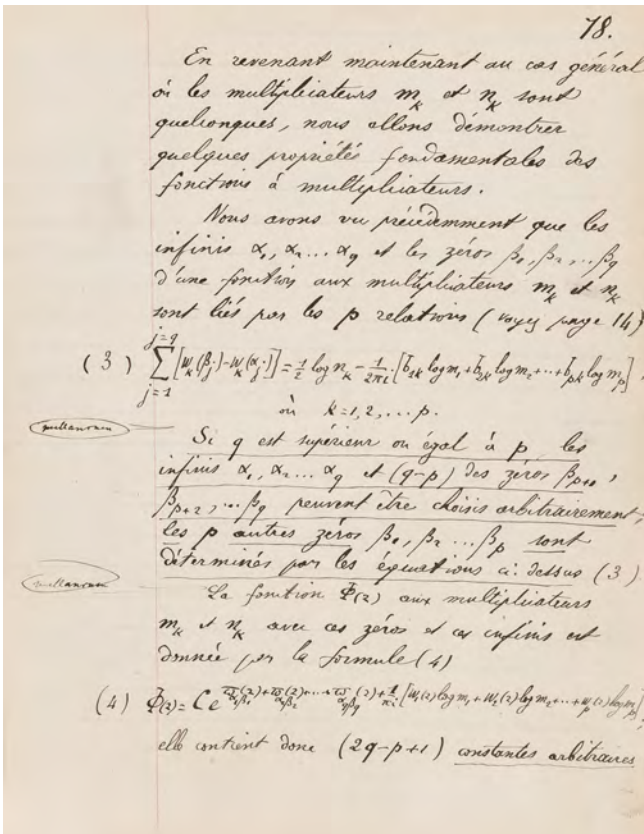 78.
En revenant maintenant au cas général
où les multiplicateurs m_k et n_k sont
quelconques, nous allons démontrer
quelques propriétés fondamentales des
fonctions à multiplicateurs.
Nous avons vu précédemment que les
infinis α₁, α₂ ... α_q et les zéros β₁, β₂, ... β_q
d'une fonction aux multiplicateurs m_k et n_k
sont liés par les p relations (voyez page 14)
(3) \sum_{j=1}^{j=q} [w_k(β_j) - w_k(α_j)] = \frac{1}{2} log n_k - \frac{1}{2πi} [b_{1k} log m₁ + b_{2k} log m₂ + ... + b_{pk} log m_p].
où k = 1, 2, ... p.
mellanrum
Si q est supérieur ou égal à p les
infinis α₁, α₂ ... α_q et (q-p) des zéros β_{p+1},
β_{p+2}, ... β_q peuvent être choisis arbitrairement;
les p autres zéros β₁, β₂ ... β_p sont
déterminés par les équations ci-dessus (3)
mellanrum
La fonction Φ(z) aux multiplicateurs
m_k et n_k avec ces zéros et ces infinis est
donnée par la formule (4)
(4) Φ(z) = C e^{ϖ_{α₁β₁}(z) + ϖ_{α₂β₂}(z) + ... + ϖ_{α_qβ_q}(z) + \frac{1}{πi} [w₁(z) log m₁ + w₂(z) log m₂ + ... + w_p(z) log m_p]},
elle contient donc (2q-p+1) constantes arbitraires